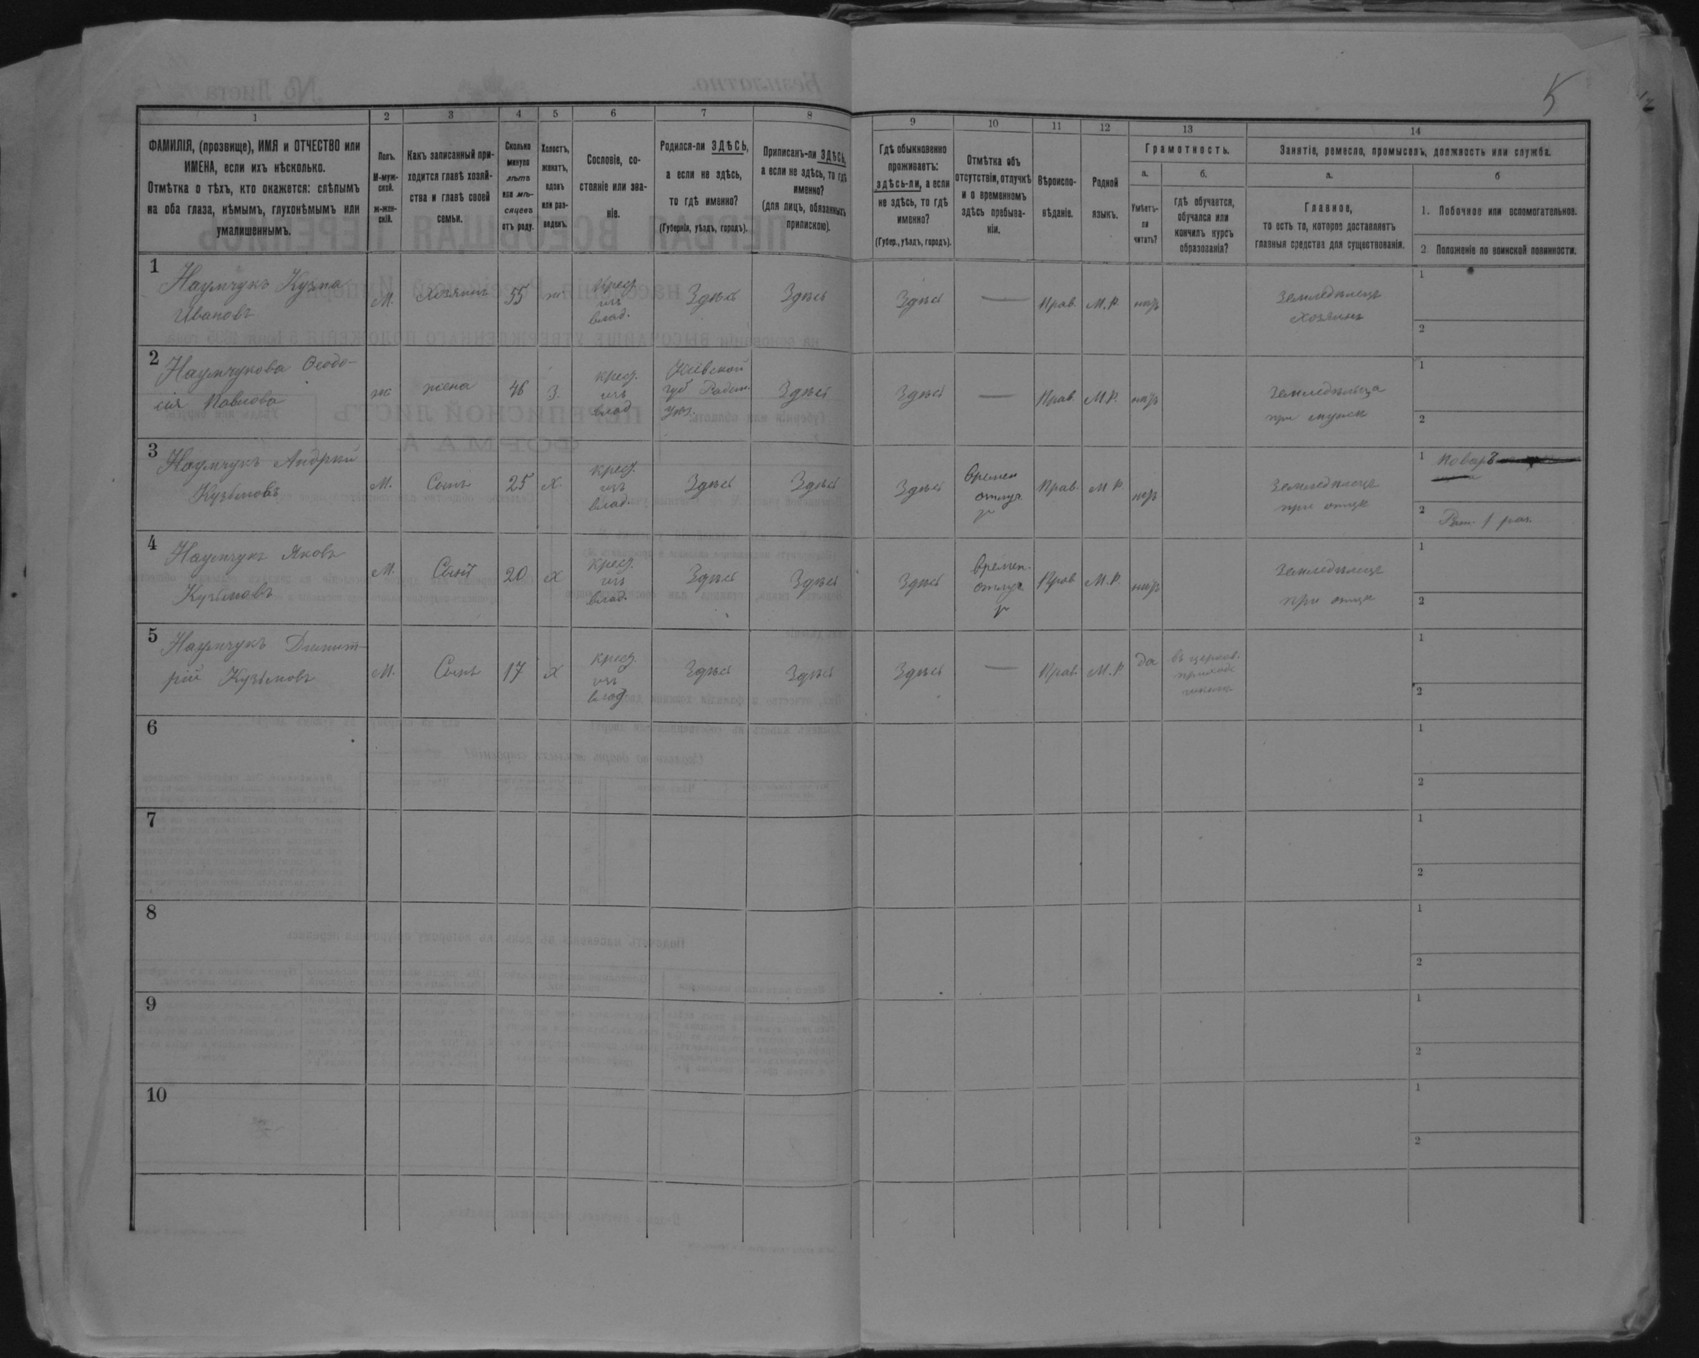 5
1
2
3
4
5
6
7
8
9
10
11
12
13
14
ФАМИЛІЯ, (прозвище), ИМЯ и ОТЧЕСТВО или
ИМЕНА, если ихъ нѣсколько.
Отмѣтка о тѣхъ, кто окажется: слѣпымъ
на оба глаза, нѣмымъ, глухонѣмымъ или
умалишеннымъ.
Полъ.
М-муж-
ской.
ж-жен-
скій.
Какъ записанный при-
ходится главѣ хозяй-
ства и главѣ своей
семьи.
Сколько
минуло
лѣтъ
или мѣ-
сяцевъ
отъ роду.
Холостъ,
женатъ,
вдовъ
или раз-
веденъ.
Сословіе, со-
стояніе или зва-
ніе.
Родился-ли ЗДѢСЬ,
а если не здѣсь,
то гдѣ именно?
(Губернія, уѣздъ, городъ).
Приписанъ-ли ЗДѢСЬ,
а если не здѣсь, то гдѣ
именно?
(для лицъ, обязанныхъ
припискою).
Гдѣ обыкновенно
проживаетъ:
здѣсь-ли, а если
не здѣсь, то гдѣ
именно?
(Губер., уѣздъ, городъ).
Отмѣтка объ
отсутствіи, отлучкѣ
и о временномъ
здѣсь пребыва-
ніи.
Вѣроиспо-
вѣданіе.
Родной
языкъ.
Грамотность.
а.
Умѣетъ-
ли
читать?
б.
гдѣ обучается,
обучался или
кончилъ курсъ
образованія?
Занятіе, ремесло, промыселъ, должность или служба.
а.
Главное,
то есть то, которое доставляетъ
главныя средства для существованія.
б
1. Побочное или вспомогательное.
2. Положеніе по воинской повинности.
1
Наумчукъ Кузма
Ивановъ
М.
Хозяинъ
55
ж
Крес.
изъ
влад.
Здѣсь
Здѣсь
Здѣсь
—
Прав.
М.Р.
нѣтъ
Земледѣлецъ
хозяинъ
1
2
2
Наумчукова Ѳеодо-
сія Павлова
ж
жена
46
З.
крес.
изъ
влад
Кіевской
губ. Радом.
уѣз.
Здѣсь
Здѣсь
—
Прав.
М.Р.
нѣтъ
Земледѣлица
при мужѣ
1
2
3
Наумчукъ Андрей
Кузьмовъ
М.
Сынъ
25
х.
крес.
изъ
влад.
Здѣсь
Здѣсь
Здѣсь
Времен
отлуч
Прав.
М.Р.
нѣтъ
Земледѣлецъ
при отцѣ
1
поваръ
2
Рат. 1 раз.
4
Наумчукъ Яковъ
Кузьмовъ
М.
Сынъ
20
х
крес.
изъ
влад.
Здѣсь
Здѣсь
Здѣсь
Времен.
отлуч
Прав
М.Р.
нѣтъ
Земледѣлецъ
при отцѣ
1
2
5
Наумчукъ Димит-
рій Кузьмовъ
М.
Сынъ
17
х
крес.
изъ
влад
Здѣсь
Здѣсь
Здѣсь
—
Прав.
М.Р.
да
въ церков.
приход.
школѣ
1
2
6
1
2
7
1
2
8
1
2
9
1
2
10
1
2